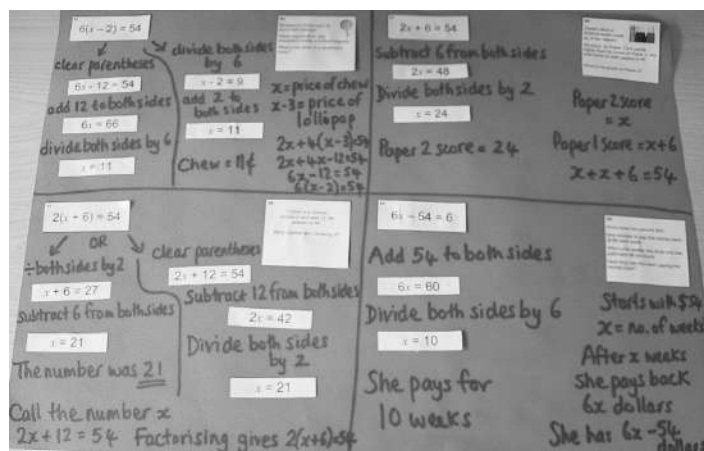 6(x - 2) = 54
clear parentheses
6x - 12 = 54
add 12 to both sides
6x = 66
divide both sides by 6
x = 11
divide both sides
by 6
x - 2 = 9
add 2 to
both sides
x = 11
Chew = 11¢
x = price of chew
x-3 = price of
lollipop
2x+4(x-3)=54
2x+4x-12=54
6x-12=54
6(x-2)=54
2x + 6 = 54
Subtract 6 from both sides
2x = 48
Divide both sides by 2
x = 24
Paper 2 score = 24
Paper 2 score
= x
Paper 1 score = x+6
x+x+6=54
2(x + 6) = 54
OR
÷ both sides by 2
x + 6 = 27
Subtract 6 from both sides
x = 21
The number was 21
clear parentheses
2x + 12 = 54
Subtract 12 from both sides
2x = 42
Divide both sides
by 2
x = 21
Call the number x
2x+12=54 Factorising gives 2(x+6)=54
6x - 54 = 6
Add 54 to both sides
6x = 60
Divide both sides by 6
x = 10
She pays for
10 weeks
Starts with $54
x = no. of weeks
After x weeks
She pays back
6x dollars
She has 6x-54
dollars